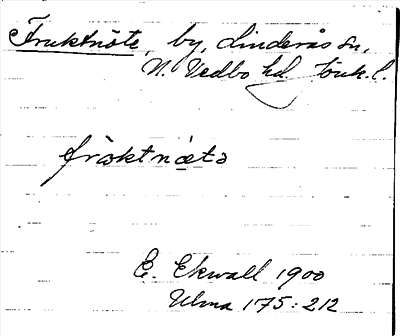 Fruktnäte, by, Linderås sn,
N. Vedbo hd Jönk. l.
fròktnæta
E. Ekwall 1900
Ulma 175:212